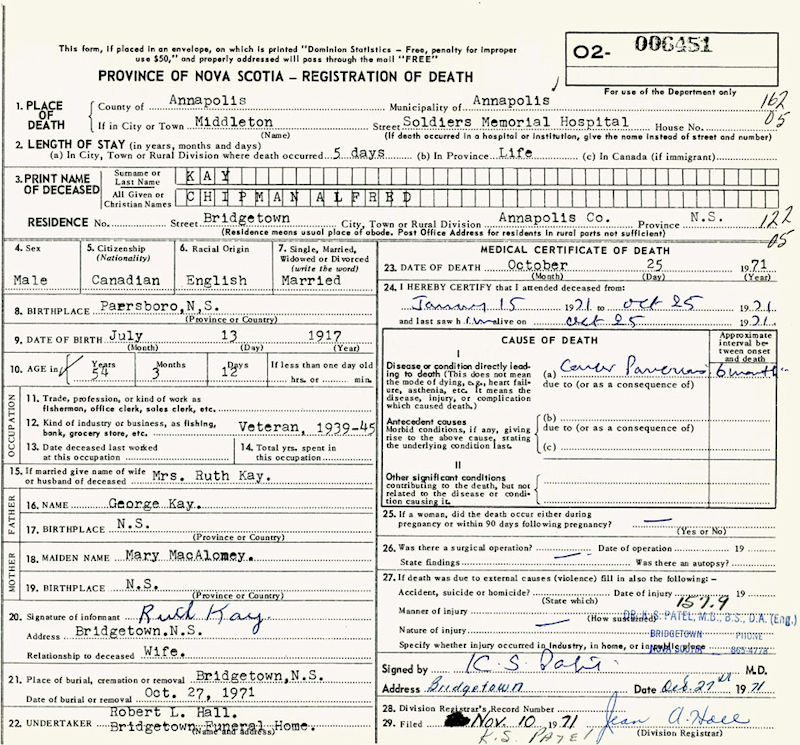 This form, if placed in an envelope, on which is printed "Dominion Statistics – Free, penalty for improper
use $50," and properly addressed will pass through the mail "FREE"
O2- 006451
PROVINCE OF NOVA SCOTIA – REGISTRATION OF DEATH
For use of the Department only
1. PLACE OF DEATH County of Annapolis Municipality of Annapolis 162
If in City or Town Middleton Street Soldiers Memorial Hospital House No. 05
(Name) (If death occurred in a hospital or institution, give the name instead of street and number)
2. LENGTH OF STAY (in years, months and days)
(a) In City, Town or Rural Division where death occurred 5 days (b) In Province Life (c) In Canada (if immigrant)
3. PRINT NAME OF DECEASED Surname or Last Name KAY
All Given or Christian Names CHIPMAN ALFRED
RESIDENCE No. Street Bridgetown City, Town or Rural Division Annapolis Co. Province N.S. 122
(Residence means usual place of abode. Post Office Address for residents in rural parts not sufficient) 05
4. Sex 5. Citizenship (Nationality) 6. Racial Origin 7. Single, Married, Widowed or Divorced (write the word)
Male Canadian English Married
8. BIRTHPLACE Parrsboro,N,S.
(Province or Country)
9. DATE OF BIRTH July 13 1917
(Month) (Day) (Year)
10. AGE in Years Months Days If less than one day old
54 3 12 hrs. or min.
OCCUPATION
11. Trade, profession, or kind of work as
fisherman, office clerk, sales clerk, etc.
12. Kind of industry or business, as fishing,
bank, grocery store, etc. Veteran, 1939-45
13. Date deceased last worked
at this occupation
14. Total yrs. spent in
this occupation
15. If married give name of wife
or husband of deceased Mrs. Ruth Kay.
FATHER
16. NAME George Kay.
17. BIRTHPLACE N.S.
(Province or Country)
MOTHER
18. MAIDEN NAME Mary MacAlomey.
19. BIRTHPLACE N.S.
(Province or Country)
20. Signature of informant Ruth Kay.
Address Bridgetown.N.S.
Relationship to deceased Wife.
21. Place of burial, cremation or removal Bridgetown,N.S.
Date of burial or removal Oct. 27, 1971
22. UNDERTAKER Robert L. Hall.
Bridgetown Funeral Home.
(Name and address)
MEDICAL CERTIFICATE OF DEATH
23. DATE OF DEATH October 25 1971
(Month) (Day) (Year)
24. I HEREBY CERTIFY that I attended deceased from:
January 15 1971 to Oct 25 1971
and last saw him alive on Oct 25 1971.
CAUSE OF DEATH
Approximate interval between onset and death
I
Disease or condition directly leading to death (This does not mean
the mode of dying, e.g., heart failure, asthenia, etc. It means the
disease, injury, or complication
which caused death.)
(a) Cancer Pancreas 6 months
due to (or as a consequence of)
Antecedent causes
Morbid conditions, if any, giving
rise to the above cause, stating
the underlying condition last.
(b)
due to (or as a consequence of)
(c)
II
Other significant conditions
contributing to the death, but not
related to the disease or condition causing it.
25. If a woman, did the death occur either during
pregnancy or within 90 days following pregnancy? —
(Yes or No)
26. Was there a surgical operation? — Date of operation 19
State findings Was there an autopsy?
27. If death was due to external causes (violence) fill in also the following:–
Accident, suicide or homicide? Date of injury 19
(State which) 157.9
Manner of injury
(How sustained)
DR. K. S. PATEL, M.B., B.S., D.A. (Eng.)
Nature of injury — BRIDGETOWN PHONE
Specify whether injury occurred in industry, in home, or in public place
NOVA SCOTIA 665-4778
Signed by K. S. Patel M.D.
Address Bridgetown Date Oct. 27th 1971
28. Division Registrar's Record Number
29. Filed Nov. 10 1971 Jean A. Hall
K.S. PATEL (Division Registrar)